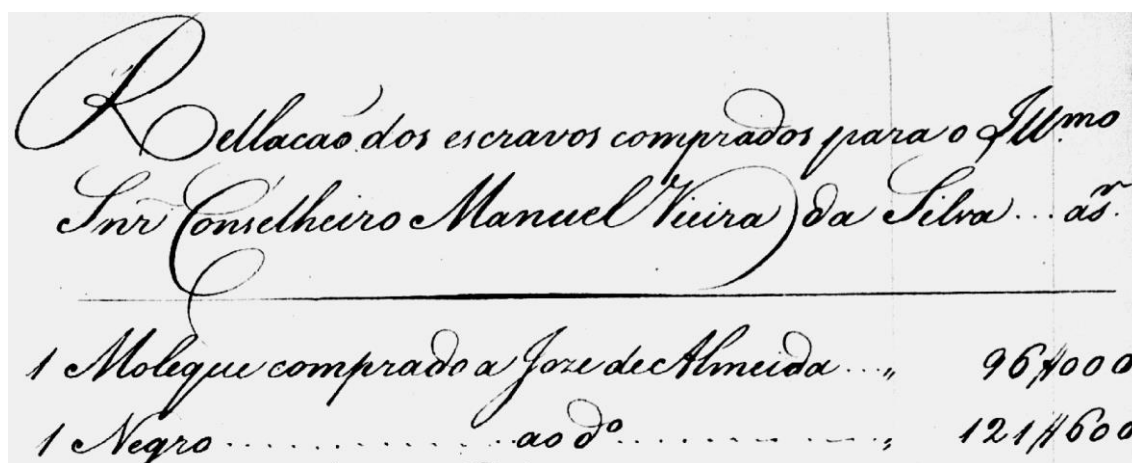 Rellacaõ dos escravos comprados para o Ill.mo
Snr Conselheiro Manuel Vieira da Silva ... as.
1 Moleque comprado a Joze de Almeida ... „ 96$000
1 Negro .............. ao do .............. „ 121$600